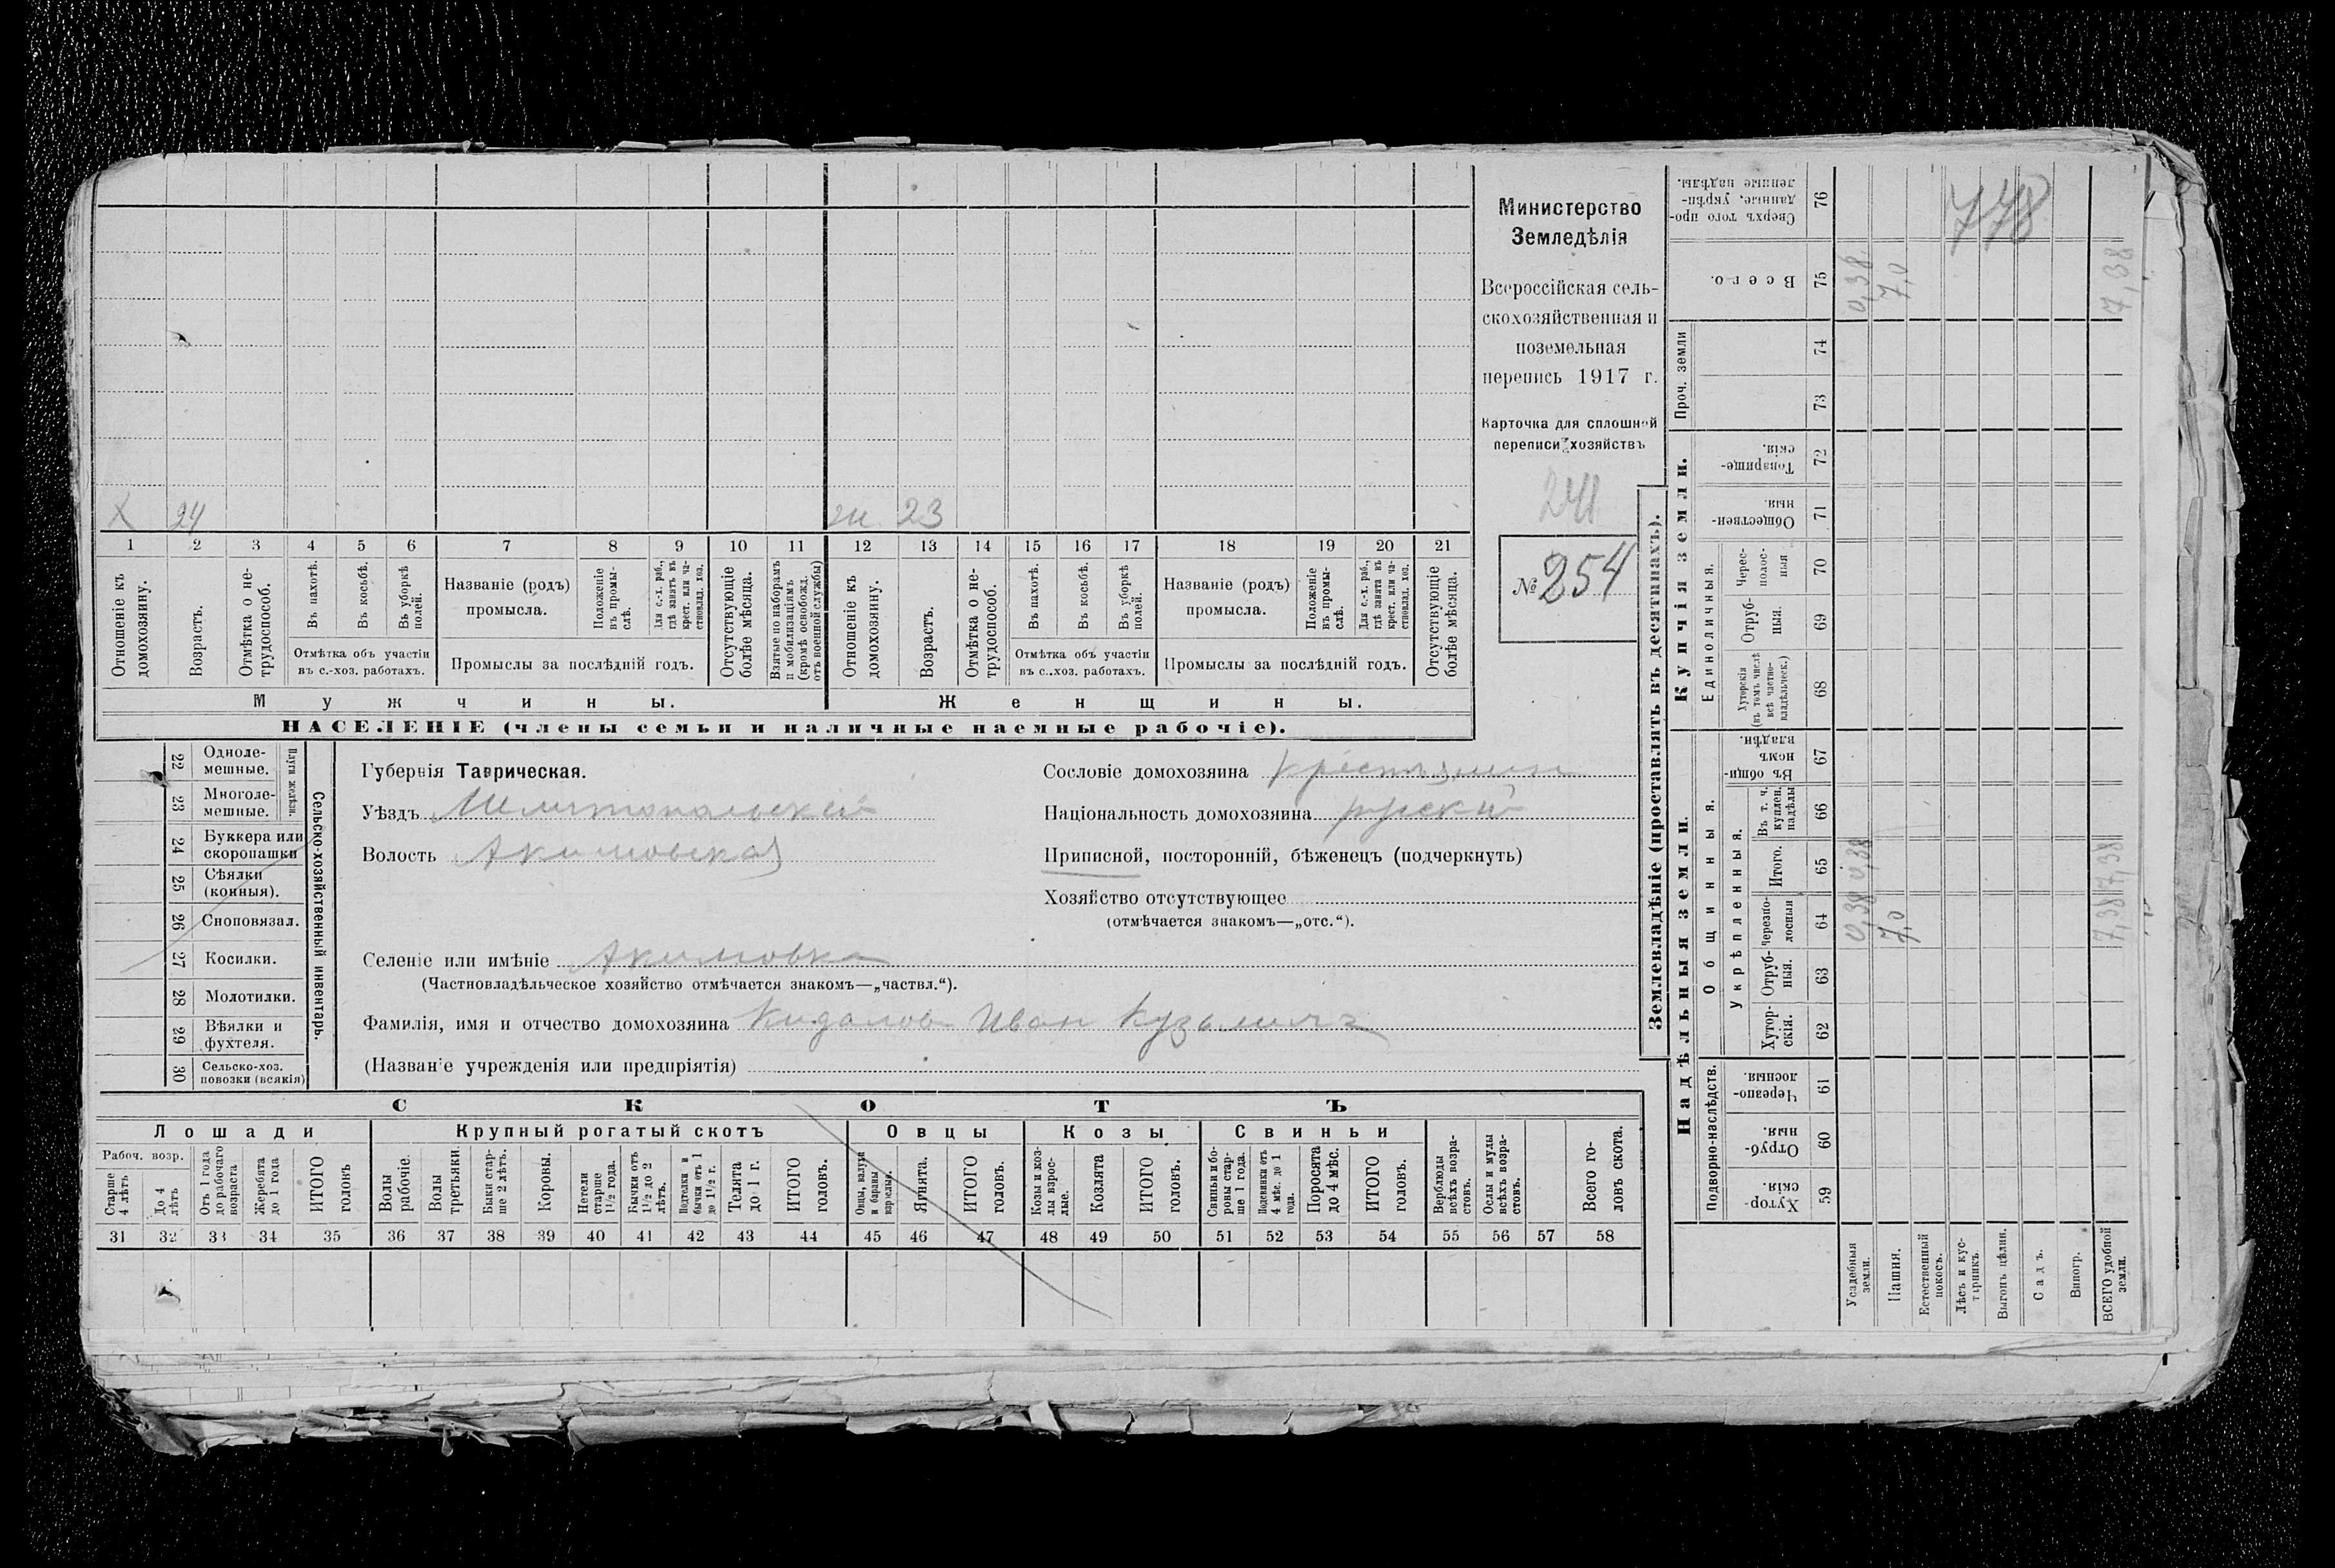 Министерство
Земледѣлія
Всероссійская сель-
скохозяйственная и
поземельная
перепись 1917 г.
Карточка для сплошной
переписи хозяйствъ
241
№ 254
Х 24
ж. 23
1 2 3 4 5 6 7 8 9 10 11 12 13 14 15 16 17 18 19 20 21
Отношеніе къ домохозяину.
Возрастъ.
Отмѣтка о не-трудоспособ.
Въ пахотѣ.
Въ косьбѣ.
Въ уборкѣ полей.
Отмѣтка объ участіи
въ с.-хоз. работахъ.
Названіе (родъ)
промысла.
Положеніе въ промы-слѣ.
Для с.-х. раб., гдѣ занятъ въ крест. или ча-стновлад. хоз.
Промыслы за послѣдній годъ.
Отсутствующіе болѣе мѣсяца.
Взятые по наборамъ и мобилизаціямъ (кромѣ освобожд. отъ военной службы)
Отношеніе къ домохозяину.
Возрастъ.
Отмѣтка о не-трудоспособ.
Въ пахотѣ.
Въ косьбѣ.
Въ уборкѣ полей.
Отмѣтка объ участіи
въ с.-хоз. работахъ.
Названіе (родъ)
промысла.
Положеніе въ промы-слѣ.
Для с.-х. раб., гдѣ занята въ крест. или ча-стновлад. хоз.
Промыслы за послѣдній годъ.
Отсутствующіе болѣе мѣсяца.
Мужчины.
Женщины.
НАСЕЛЕНІЕ (члены семьи и наличные наемные рабочіе).
Сельско-хозяйственный инвентарь.
Плуги желѣзн.
22 Одноле-мешные.
23 Многоле-мешные.
24 Буккера или скоропашки
25 Сѣялки (конныя).
26 Сноповязал.
27 Косилки.
28 Молотилки.
29 Вѣялки и фухтеля.
30 Сельско-хоз. повозки (всякія)
Губернія Таврическая.
Уѣздъ Мелитопольскій
Волость Акимовская
Селеніе или имѣніе Акимовка
(Частновладѣльческое хозяйство отмѣчается знакомъ—„частвл.“).
Фамилія, имя и отчество домохозяина Кидалов Иван Кузьмичъ
(Названіе учрежденія или предпріятія)
Сословіе домохозяина крестьянин
Національность домохозяина русскій
Приписной, посторонній, бѣженецъ (подчеркнуть)
Хозяйство отсутствующее
(отмѣчается знакомъ—„отс.“).
СКОТЪ
Лошади
Крупный рогатый скотъ
Овцы
Козы
Свиньи
Рабоч. возр.
Старше 4 лѣтъ
До 4 лѣтъ
Отъ 1 года до рабочаго возраста
Жеребята до 1 года
ИТОГО головъ
Волы рабочіе.
Волы третьяки.
Быки стар-ше 2 лѣтъ.
Коровы.
Нетели старше 1½ года.
Бычки отъ 1½ до 2 лѣтъ.
Подтелки и бычки отъ 1 до 1½ г.
Телята до 1 г.
ИТОГО головъ.
Овцы, валухи и бараны взрослые.
Ягнята.
ИТОГО головъ.
Козы и коз-лы взрос-лые.
Козлята
ИТОГО головъ.
Свиньи и бо-ровы стар-ше 1 года.
Подсвинки отъ 4 мѣс. до 1 года.
Поросята до 4 мѣс.
ИТОГО головъ.
Верблюды всѣхъ возра-стовъ.
Ослы и мулы всѣхъ возра-стовъ.
Всего го-ловъ скота.
31 32 33 34 35 36 37 38 39 40 41 42 43 44 45 46 47 48 49 50 51 52 53 54 55 56 57 58
Землевладѣніе (проставлять въ десятинахъ).
Надѣльныя земли.
Купчія земли.
Проч. земли
Подворно-наслѣдств.
Общинныя.
Укрѣпленныя.
Единоличныя.
Хутор-скія. 59
Отруб-ныя. 60
Черезпо-лосныя. 61
Хутор-скія. 62
Отруб-ныя. 63
Черезпо-лосныя 64
Итого. 65
Въ т. ч. куплен. надѣлы 66
Въ общи-номъ владѣн. 67
Хуторскія (въ томъ числѣ всѣ частно-владѣльческ.) 68
Отруб-ныя. 69
Черес-полос-ныя 70
Обществен-ныя. 71
Товарище-скія. 72
73
74
Всего. 75
Сверхъ того про-данные, укрѣп-ленные надѣлы. 76
Усадебныя земли. 0,38 0,38 0,38
Пашня. 7,0 7,0
Естественный покосъ.
Лѣсъ и кус-тарникъ
Выгонъ цѣлин.
Садъ.
Виногр.
ВСЕГО удобной земли. 7,38 7,38 7,38
778